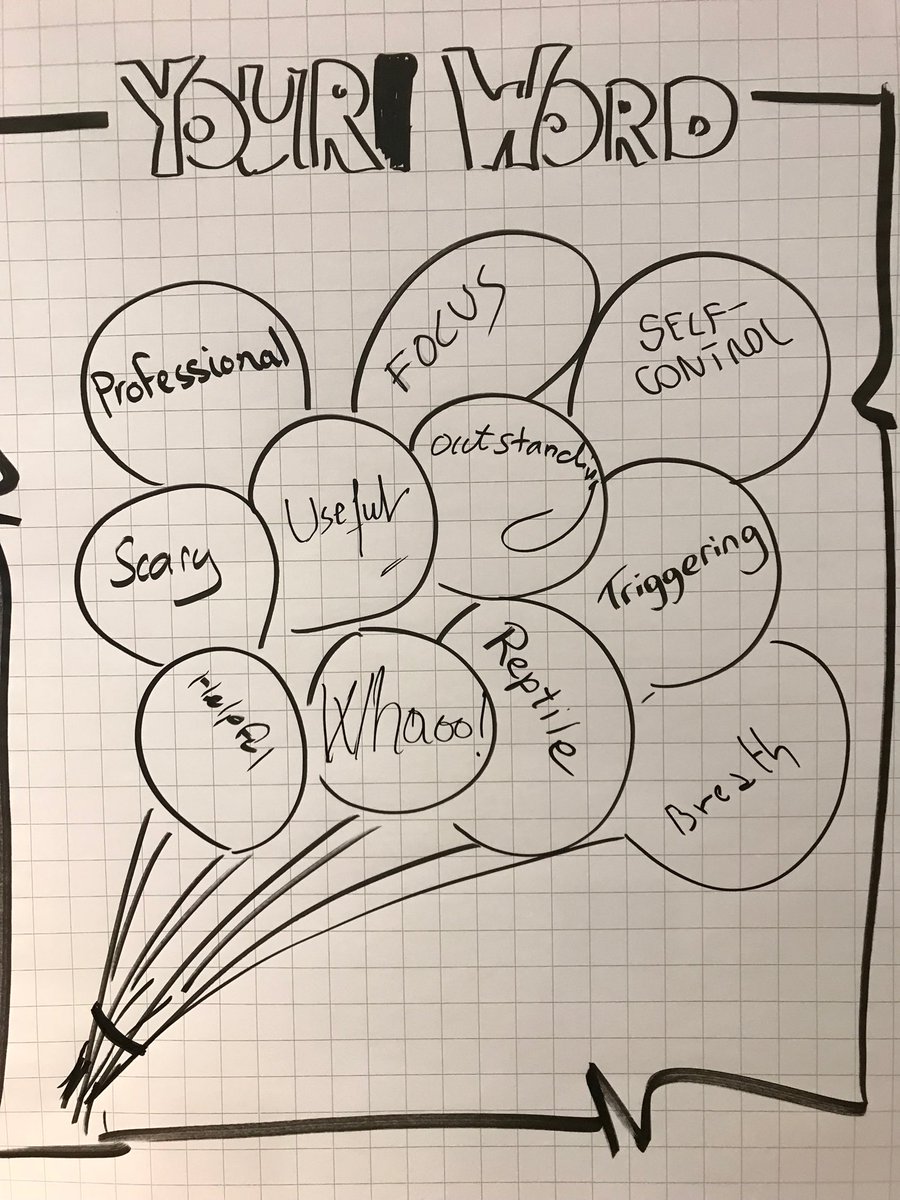 YOUR WORD
Professional
FOCUS
SELF-
CONTROL
Useful
outstanding
Scary
Triggering
Helpful
Whaoo!
Reptile
Breath